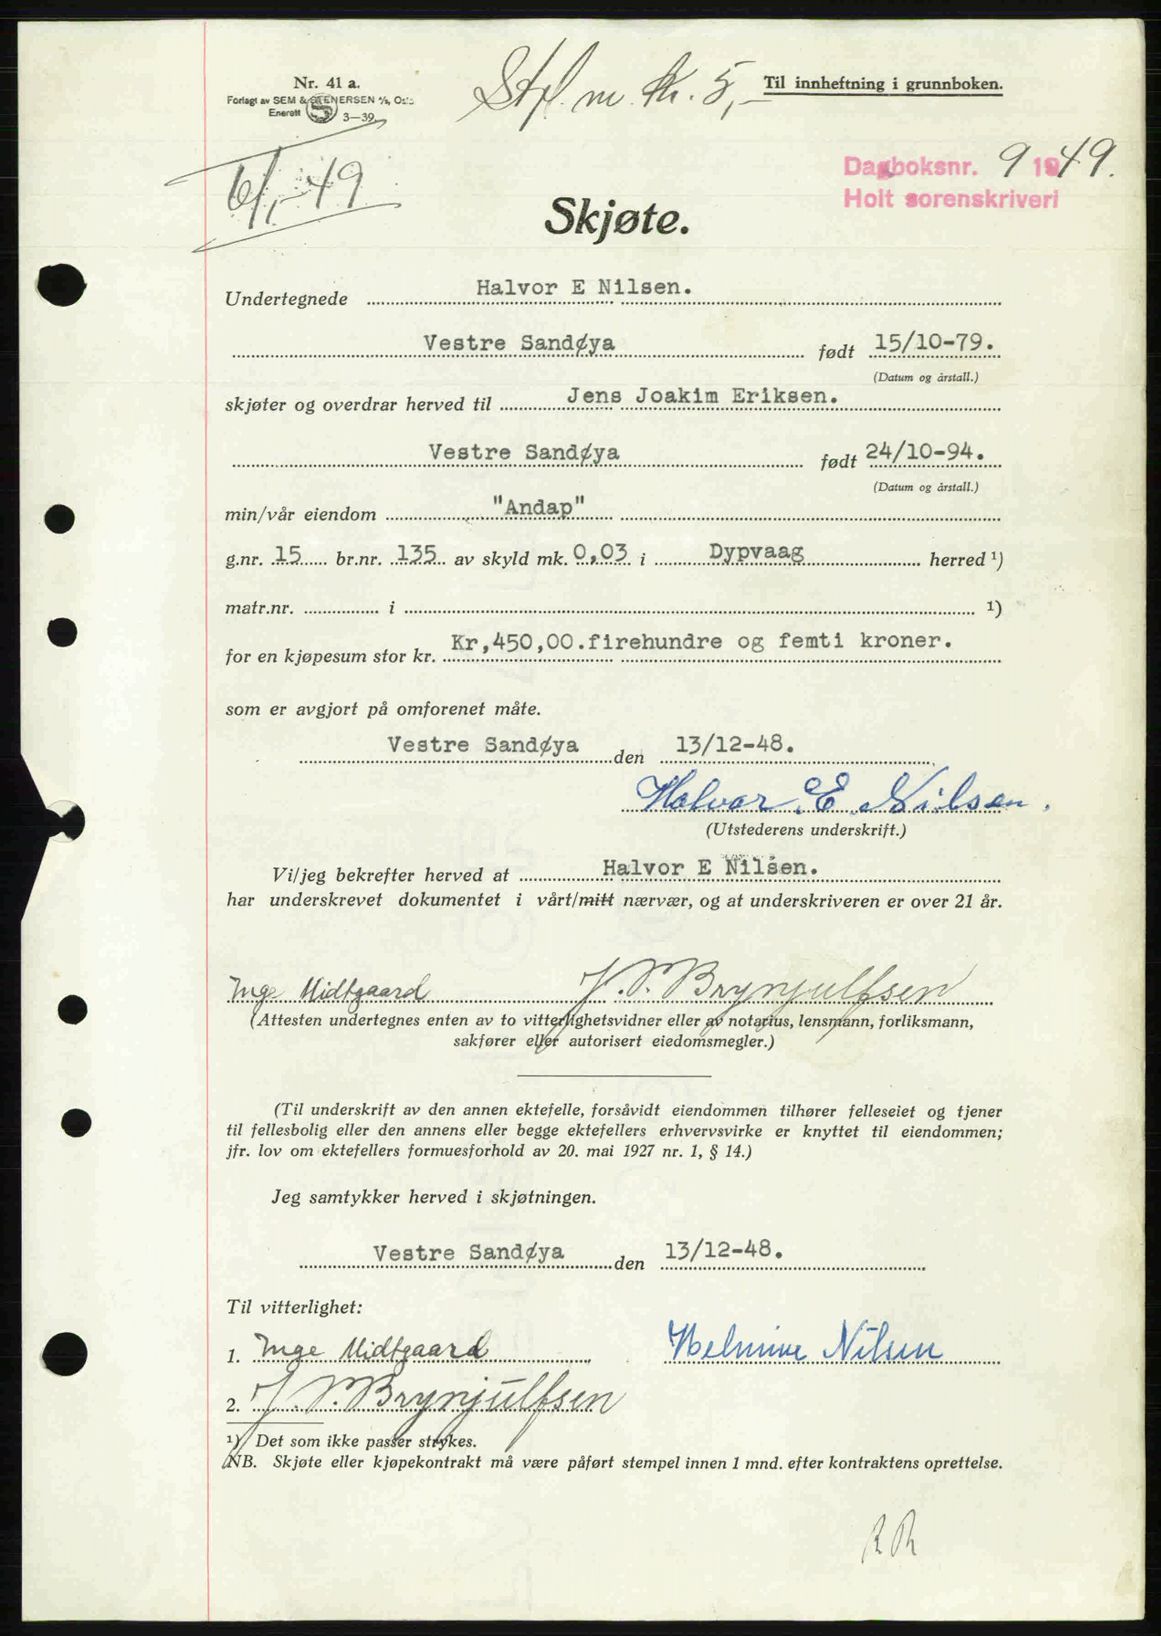 Nr. 41 a.
Forlagt av SEM & STENERSEN A/S, Oslo
Enerett 3—39.
Stpl. m. Kr. 5,-
Til innheftning i grunnboken.
6/1-49
Dagboksnr. 9 1949.
Holt sorenskriveri
Skjøte.
Undertegnede Halvor E Nilsen.
Vestre Sandøya født 15/10-79.
(Datum og årstall.)
skjøter og overdrar herved til Jens Joakim Eriksen.
Vestre Sandøya født 24/10-94.
(Datum og årstall.)
min/vår eiendom "Andap"
g.nr. 15 br.nr. 135 av skyld mk. 0,03 i Dypvaag herred ¹)
matr.nr. i ¹)
for en kjøpesum stor kr. Kr,450,00.firehundre og femti kroner.
som er avgjort på omforenet måte.
Vestre Sandøya den 13/12-48.
Halvor E Nilsen.
(Utstederens underskrift.)
Vi/jeg bekrefter herved at Halvor E Nilsen.
har underskrevet dokumentet i vårt/mitt nærvær, og at underskriveren er over 21 år.
Inge Midtgaard J. P. Brynjulfsen
(Attesten undertegnes enten av to vitterlighetsvidner eller av notarius, lensmann, forliksmann,
sakfører eller autorisert eiedomsmegler.)
(Til underskrift av den annen ektefelle, forsåvidt eiendommen tilhører felleseiet og tjener
til fellesbolig eller den annens eller begge ektefellers erhvervsvirke er knyttet til eiendommen;
jfr. lov om ektefellers formuesforhold av 20. mai 1927 nr. 1, § 14.)
Jeg samtykker herved i skjøtningen.
Vestre Sandøya den 13/12-48.
Til vitterlighet:
1. Inge Midtgaard Helmine Nilsen
2. J. P. Brynjulfsen
¹) Det som ikke passer strykes.
NB. Skjøte eller kjøpekontrakt må være påført stempel innen 1 mnd. efter kontraktens oprettelse.